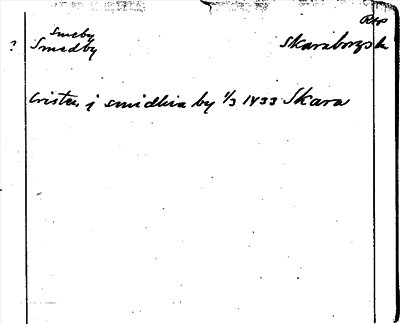 Rep
Smeby
? Smedby Skaraborgs l
Cristen j smidhia by 1/3 1433 Skara